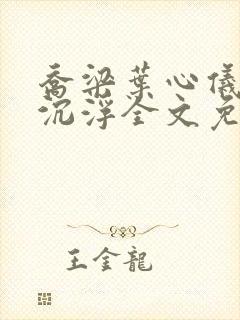 乔梁葉心儀
沉浮全文免
王金龍